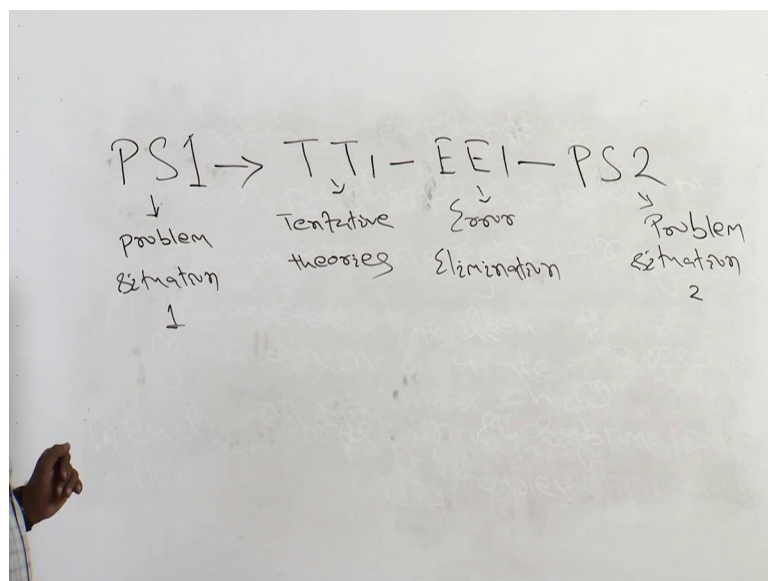 PS1 → TT1 – EE1 – PS2
↓ ↓ ↓ ↓
problem situation 1
Tentative theories
Error Elimination
Problem situation 2